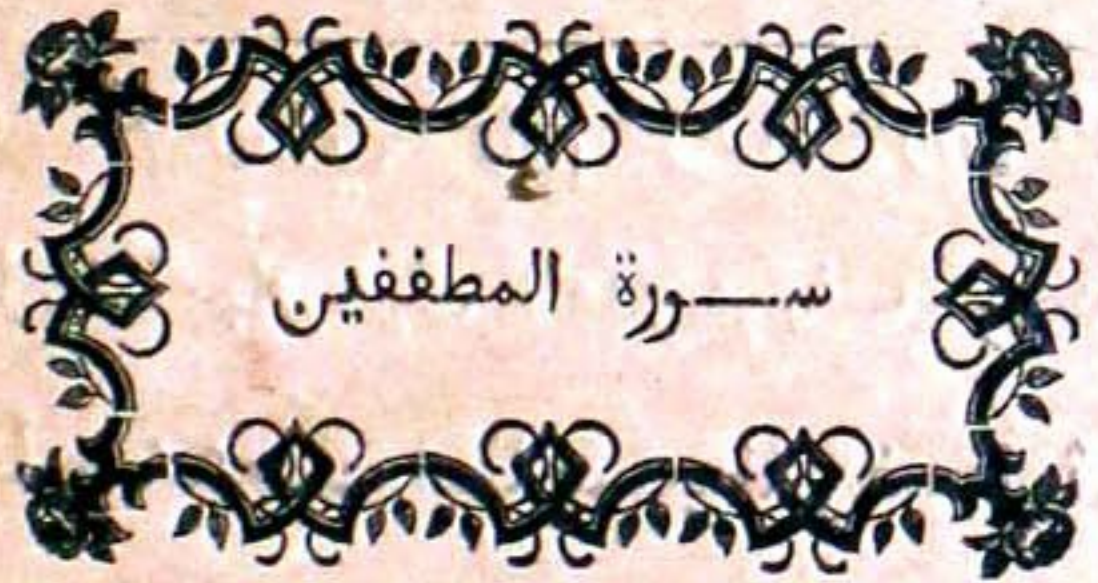 سـورة المطففين